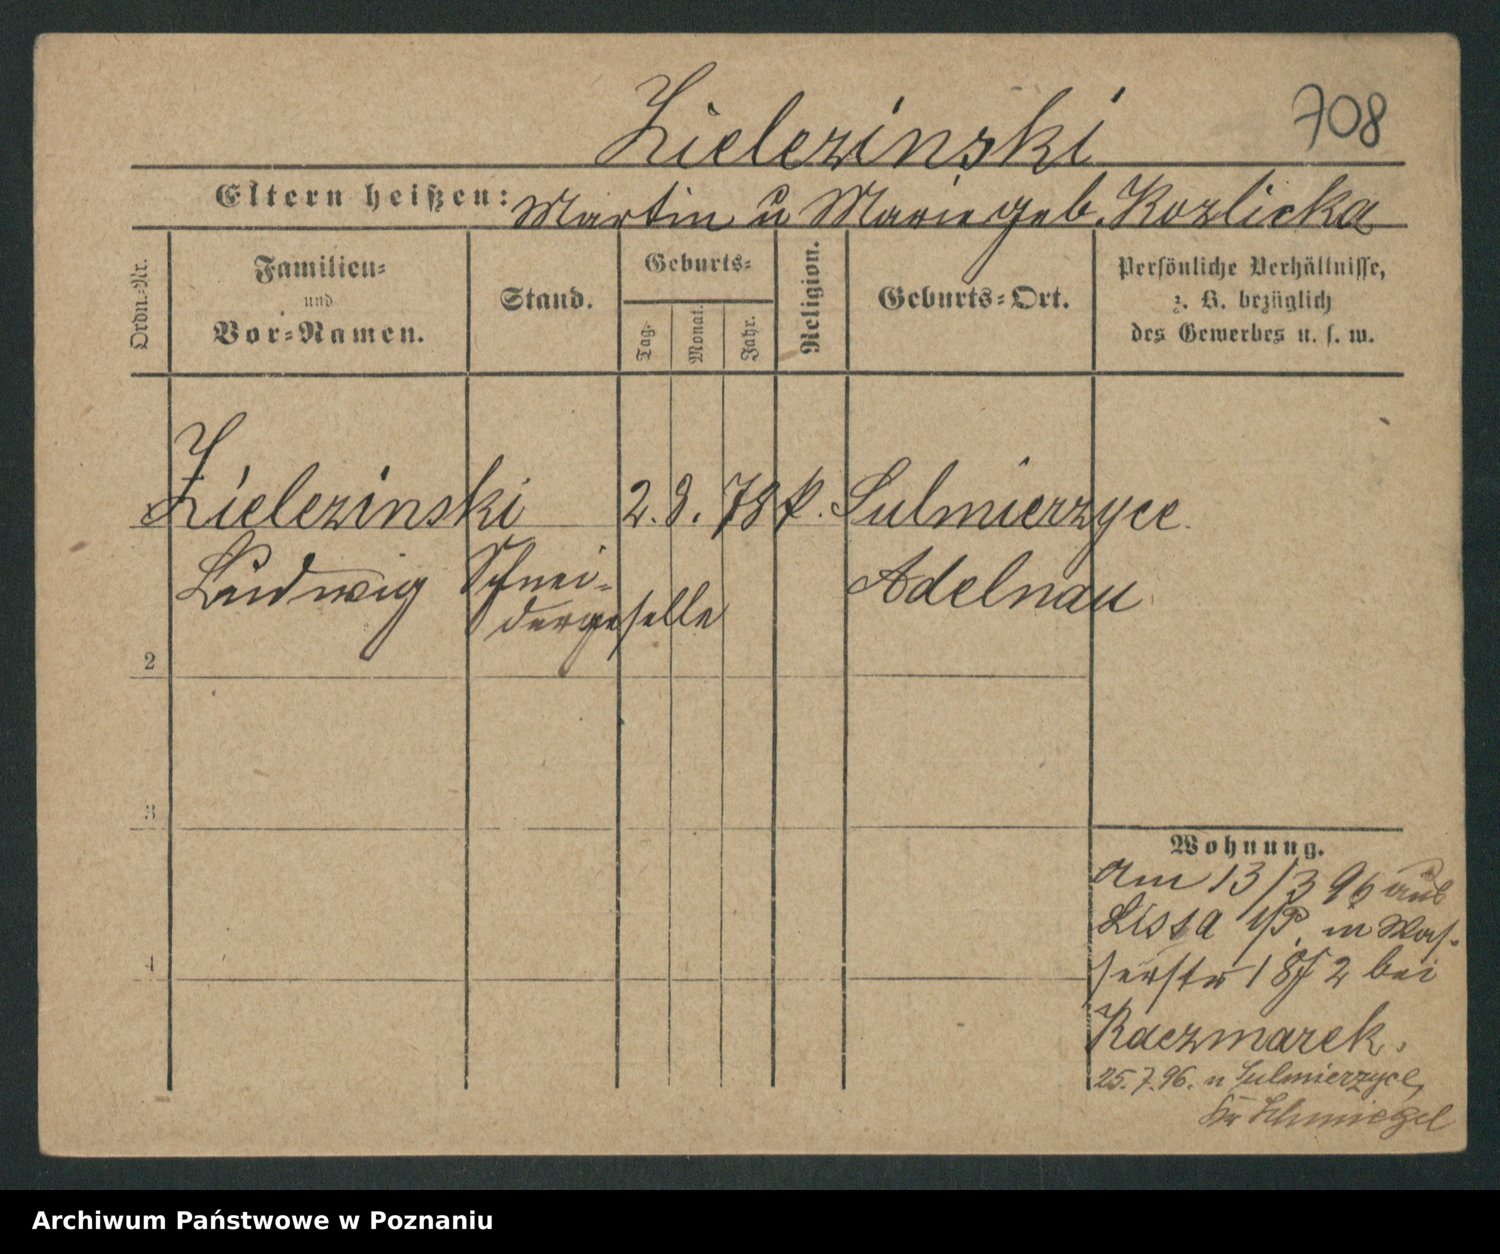 708
Zielezinski
Eltern heißen: Martin u Marie geb. Kozlicka
Ordn.-Nr.
Familien-
und
Vor-Namen.
Stand.
Geburts-
Tag.
Monat.
Jahr.
Religion.
Geburts-Ort.
Persönliche Verhältnisse,
z. B. bezüglich
des Gewerbes u. s. w.
Zielezinski 2. 8. 78 k. Sulmierzyce
Ludwig Schnei- Adelnau
dergeselle
2
3
4
Wohnung.
Am 13/3 96 aus
Lissa i/P. in Was-
serstr 18/ 2 bei
Kaczmarek.
25.7.96. n Sulmierzyce,
Kr Schmiegel
Archiwum Państwowe w Poznaniu